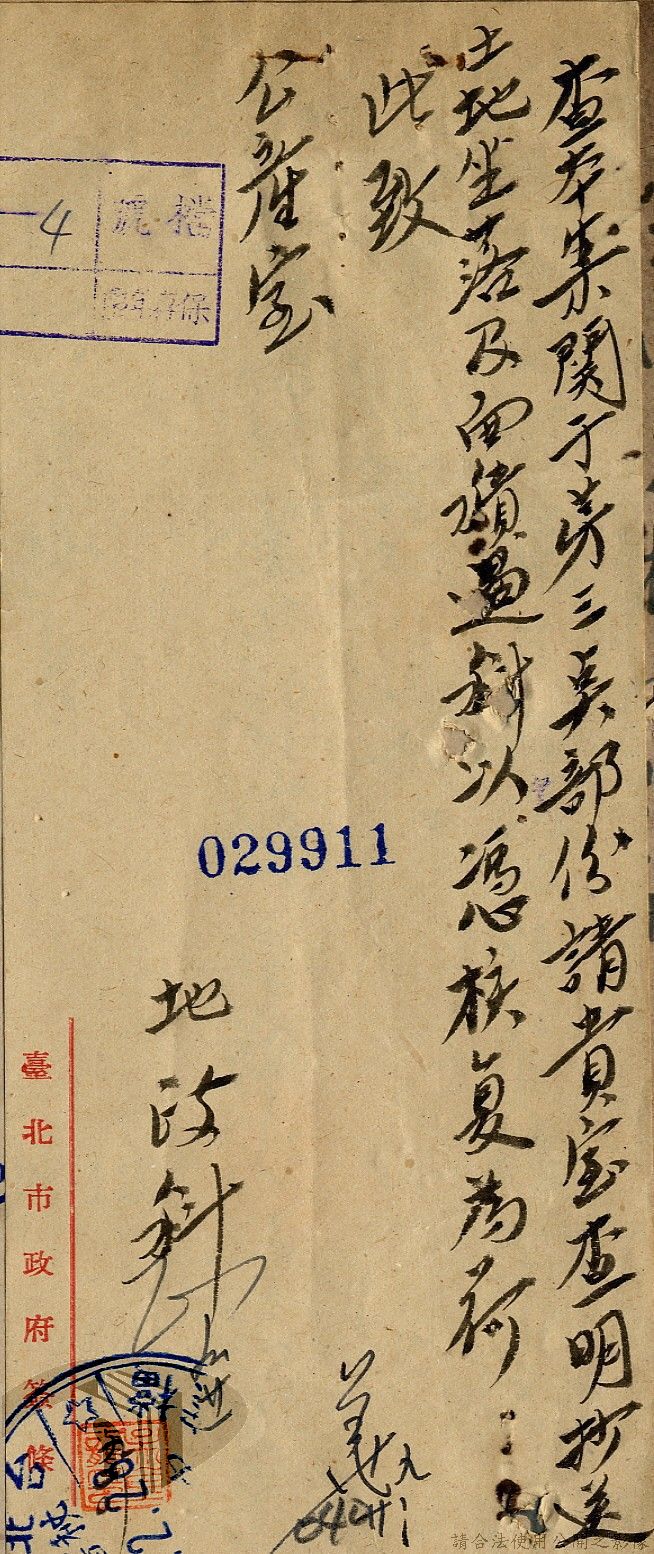 查本案關于第三点部份請貴室查明抄送
土地坐落及面積過科以憑核复為荷
此致
公產室
地政科
029911
檔號
保存年限
4
臺北市政府簽條
請合法使用公開之影像